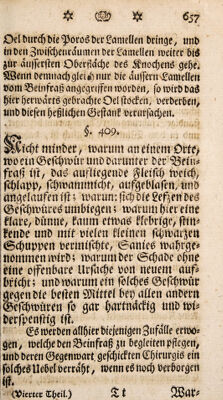 657
Oel durch die Poros der Lamellen dringe, und
in den Zwischenräumen der Lamellen weiter bis
zur äussersten Oberfläche des Knochens gehe.
Wenn demnach gleich nur die äussern Lamellen
vom Beinfraß angegriffen worden, so wird das
hier herwärts gebrachte Oel stocken, verderben,
und diesen heßlichen Gestank verursachen.
§. 409.
Nicht minder, warum an einem Orte,
wo ein Geschwür und darunter der Bein-
fraß ist, das aufliegende Fleisch weich,
schlapp, schwammicht, aufgeblasen, und
angelaufen ist; warum sich die Lefzen des
Geschwüres umbiegen; warum hier eine
klare, dünne, kaum etwas klebrige, stin-
kende und mit vielen kleinen schwarzen
Schuppen vermischte, Sanies wahrge-
nommen wird; warum der Schade ohne
eine offenbare Ursache von neuem auf-
bricht; und warum ein solches Geschwür
gegen die besten Mittel bey allen andern
Geschwüren so gar hartnäckig und wi-
derspenstig ist.
Es werden allhier diejenigen Zufälle erwo-
gen, welche den Beinfraß zu begleiten pflegen,
und deren Gegenwart geschickten Chirurgis ein
solches Uebel verräht, wenn es noch verborgen
ist.
(Vierter Theil.) T t War-